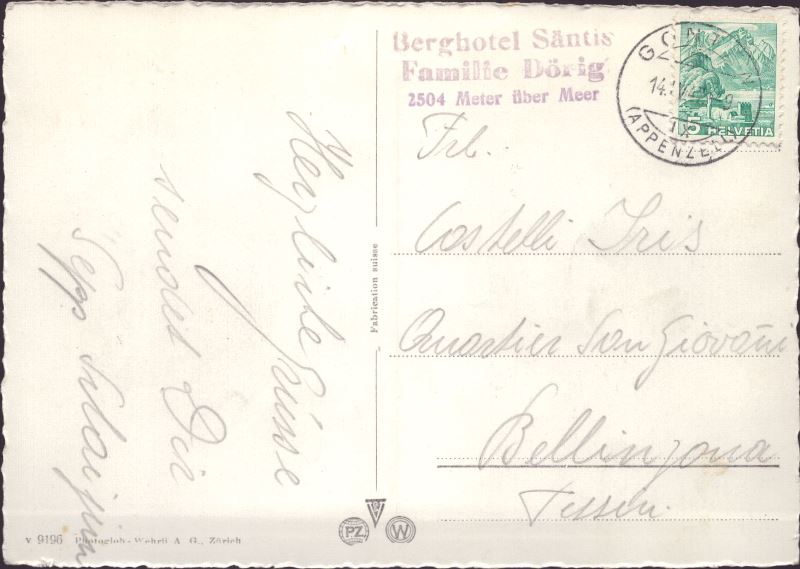 Berghotel Säntis
Familie Dörig
2504 Meter über Meer
GONTEN
(APPENZELL)
5 HELVETIA
Frl.
Castelli Iris
Quartier San Giovanni
Bellinzona
Tessin.
Herzliche Grüsse
sendet Dir
Sepp
Fabrication suisse
PZ
W
v 9196 Photoglob-Wehrli A. G., Zürich